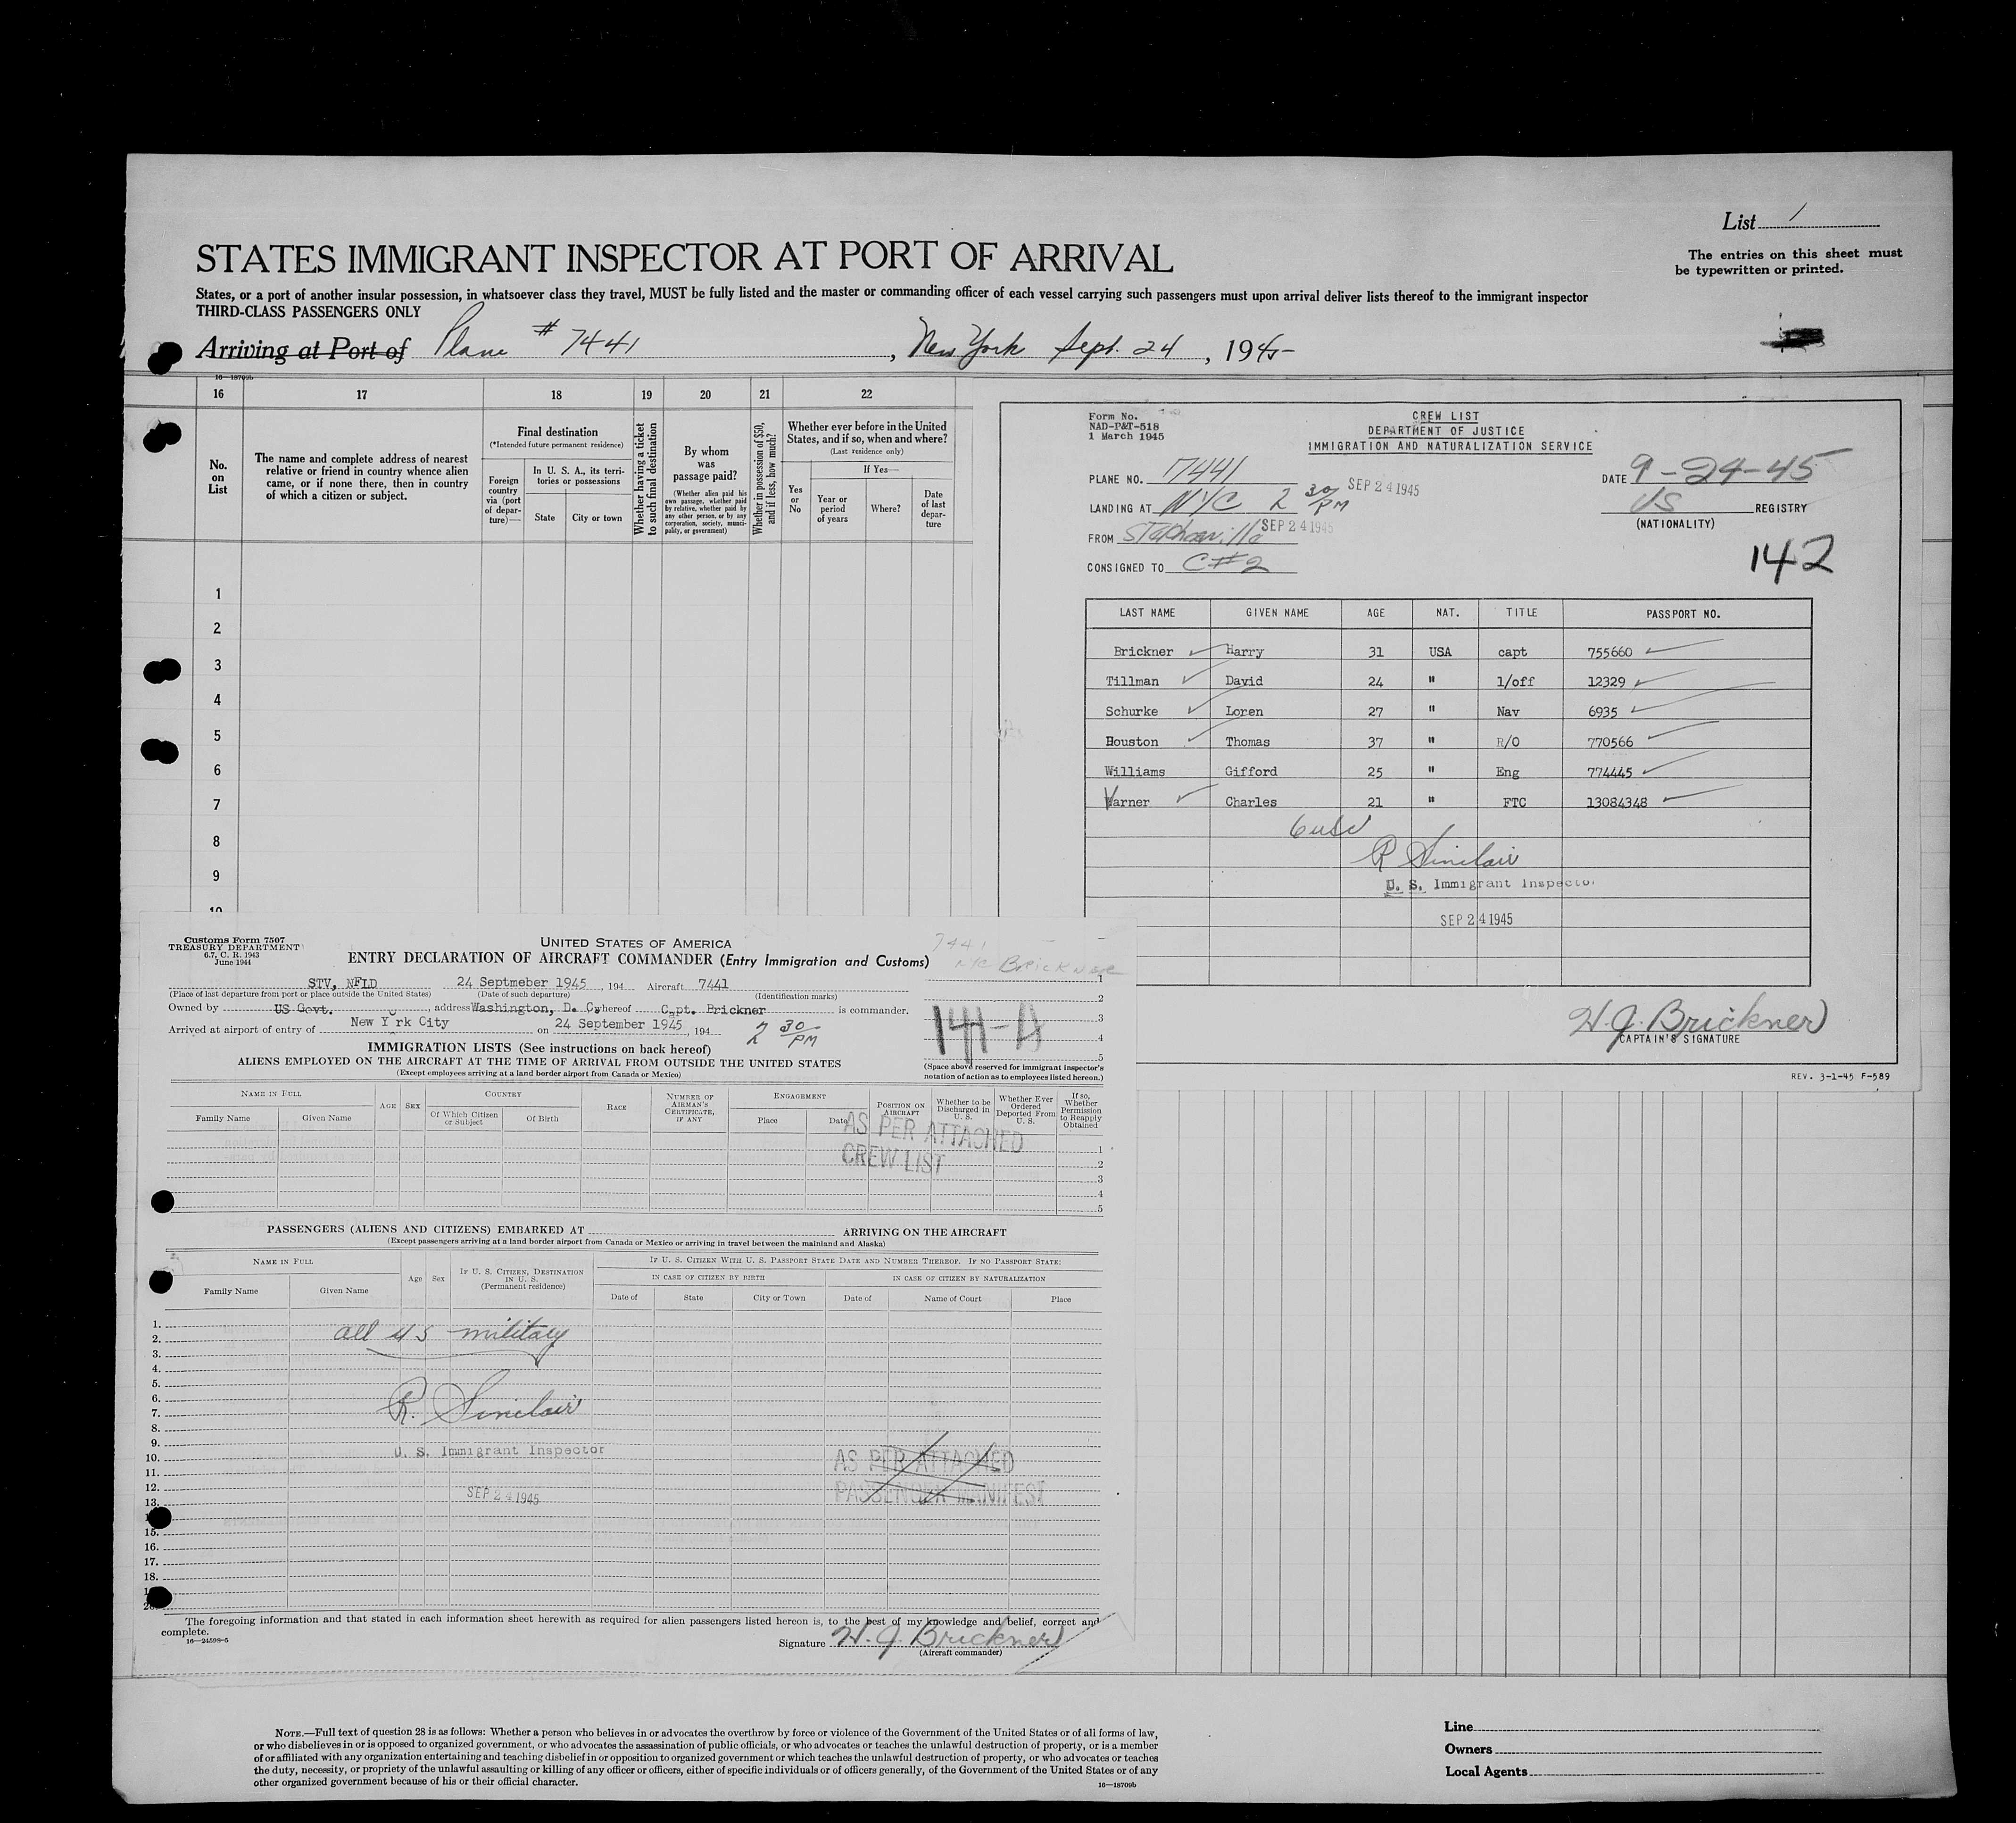 List 1
The entries on this sheet must
be typewritten or printed.
STATES IMMIGRANT INSPECTOR AT PORT OF ARRIVAL
States, or a port of another insular possession, in whatsoever class they travel, MUST be fully listed and the master or commanding officer of each vessel carrying such passengers must upon arrival deliver lists thereof to the immigrant inspector
THIRD-CLASS PASSENGERS ONLY
Arriving at Port of Plane # 7441, New York Sept. 24, 1945
16—18709b
16 17 18 19 20 21 22
No. on List
The name and complete address of nearest
relative or friend in country whence alien
came, or if none there, then in country
of which a citizen or subject.
Final destination
(*Intended future permanent residence)
Foreign country via (port of departure)—
In U. S. A., its territories or possessions
State City or town
Whether having a ticket to such final destination
By whom was passage paid?
(Whether alien paid his own passage, whether paid by relative, whether paid by any other person, or by any corporation, society, municipality, or government)
Whether in possession of $50, and if less, how much?
Whether ever before in the United
States, and if so, when and where?
(Last residence only)
Yes or No
If Yes—
Year or period of years
Where?
Date of last departure
1
2
3
4
5
6
7
8
9
10
Form No.
NAD-P&T-518
1 March 1945
CREW LIST
DEPARTMENT OF JUSTICE
IMMIGRATION AND NATURALIZATION SERVICE
PLANE NO. 7441 SEP 24 1945
DATE 9-24-45
LANDING AT NYC 2 30 PM
US REGISTRY
(NATIONALITY)
FROM Stephenville SEP 24 1945
CONSIGNED TO C#2
142
LAST NAME GIVEN NAME AGE NAT. TITLE PASSPORT NO.
Brickner Harry 31 USA capt 755660
Tillman David 24 " 1/off 12329
Schurke Loren 27 " Nav 6935
Houston Thomas 37 " R/O 770566
Williams Gifford 25 " Eng 774445
Varner Charles 21 " FTC 13084348
6 usc
R Sinclair
U. S. Immigrant Inspector
SEP 24 1945
H. J. Brickner
CAPTAIN'S SIGNATURE
REV. 3-1-45 F-589
Customs Form 7507
TREASURY DEPARTMENT
6.7, C. R. 1943
June 1944
UNITED STATES OF AMERICA
ENTRY DECLARATION OF AIRCRAFT COMMANDER (Entry Immigration and Customs)
7441
NYC Brickner
STV, NFLD 24 Septmeber 1945, 194 Aircraft 7441
(Place of last departure from port or place outside the United States) (Date of such departure) (Identification marks)
Owned by US Govt. , address Washington, D. C, hereof Capt. Brickner is commander.
Arrived at airport of entry of New York City on 24 September 1945, 194 2 30 PM
141-A
1
2
3
4
5
(Space above reserved for immigrant inspector's
notation of action as to employees listed hereon.)
IMMIGRATION LISTS (See instructions on back hereof)
ALIENS EMPLOYED ON THE AIRCRAFT AT THE TIME OF ARRIVAL FROM OUTSIDE THE UNITED STATES
(Except employees arriving at a land border airport from Canada or Mexico)
NAME IN FULL
Family Name Given Name
AGE SEX
COUNTRY
Of Which Citizen or Subject Of Birth
RACE
NUMBER OF AIRMAN'S CERTIFICATE, IF ANY
ENGAGEMENT
Place Date
POSITION ON AIRCRAFT
Whether to be Discharged in U. S.
Whether Ever Ordered Deported From U. S.
If so, Whether Permission to Reapply Obtained
AS PER ATTACHED
CREW LIST
1
2
3
4
5
PASSENGERS (ALIENS AND CITIZENS) EMBARKED AT ARRIVING ON THE AIRCRAFT
(Except passengers arriving at a land border airport from Canada or Mexico or arriving in travel between the mainland and Alaska)
NAME IN FULL
Family Name Given Name
Age Sex
IF U. S. CITIZEN, DESTINATION IN U. S.
(Permanent residence)
IF U. S. CITIZEN WITH U. S. PASSPORT STATE DATE AND NUMBER THEREOF. IF NO PASSPORT STATE:
IN CASE OF CITIZEN BY BIRTH IN CASE OF CITIZEN BY NATURALIZATION
Date of State City or Town Date of Name of Court Place
1.
2.
all US military
3.
4.
5.
6.
7.
R. Sinclair
8.
9.
U. S. Immigrant Inspector
10.
AS PER ATTACHED
11.
12.
PASSENGER MANIFEST
13.
SEP 24 1945
15.
16.
17.
18.
The foregoing information and that stated in each information sheet herewith as required for alien passengers listed hereon is, to the best of my knowledge and belief, correct and
complete.
16—24598-5
Signature H. J. Brickner
(Aircraft commander)
NOTE.—Full text of question 28 is as follows: Whether a person who believes in or advocates the overthrow by force or violence of the Government of the United States or of all forms of law,
or who disbelieves in or is opposed to organized government, or who advocates the assassination of public officials, or who advocates or teaches the unlawful destruction of property, or is a member
of or affiliated with any organization entertaining and teaching disbelief in or opposition to organized government or which teaches the unlawful destruction of property, or who advocates or teaches
the duty, necessity, or propriety of the unlawful assaulting or killing of any officer or officers, either of specific individuals or of officers generally, of the Government of the United States or of any
other organized government because of his or their official character.
16—18709b
Line
Owners
Local Agents